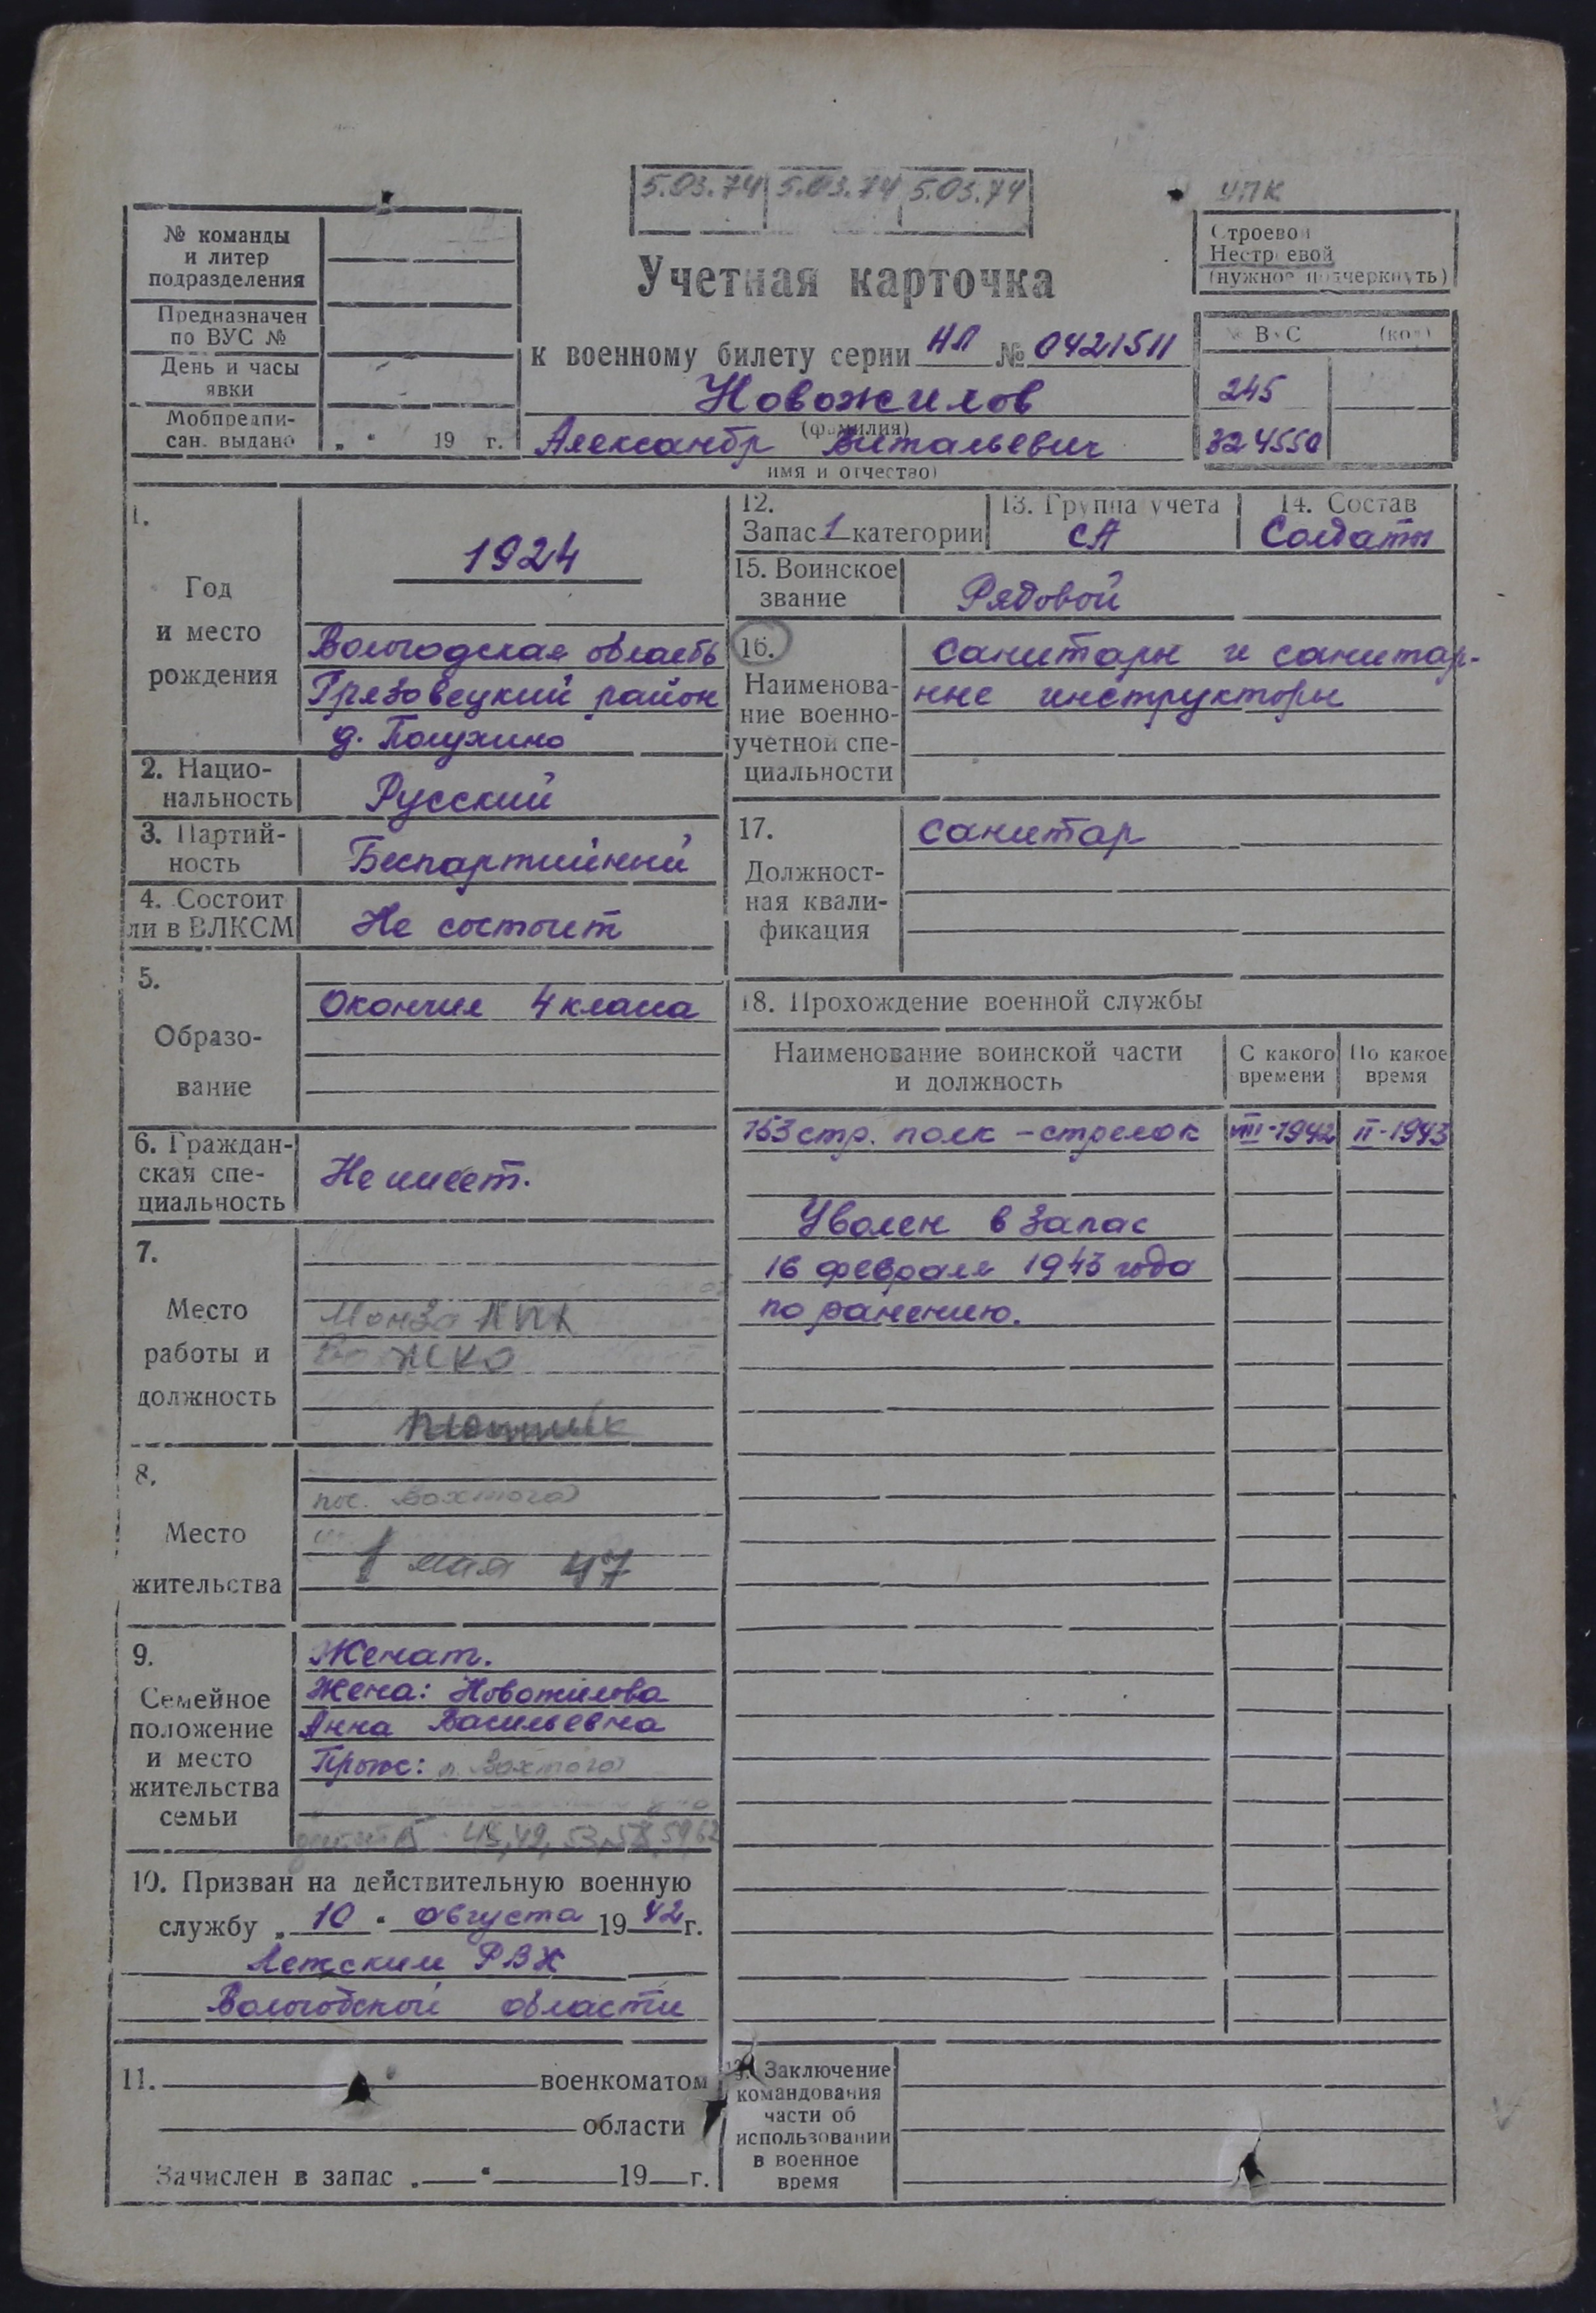 5.03.74 5.03.74 5.03.74
УПК
№ команды
и литер
подразделения
Предназначен
по ВУС №
День и часы
явки
Мобпредпи-
сан. выдано „ “ 19 г.
Учетная карточка
к военному билету серии НЛ № 0421511
Новожилов
(фамилия)
Александр Витальевич
имя и отчество)
Строевой
Нестроевой
(нужное подчеркнуть)
№ ВУС (код)
245
324550
1.
Год
и место
рождения
1924
Вологодская область
Грязовецкий район
д. Полухино
2. Нацио-
нальность
Русский
3. Партий-
ность
Беспартийный
4. Состоит
ли в ВЛКСМ
Не состоит
5.
Образо-
вание
Окончил 4 класса
6. Граждан-
ская спе-
циальность
Не имеет.
7.
Место
работы и
должность
Монза
8.
Место
жительства
пос. Вохтога
1 мая 47
9.
Семейное
положение
и место
жительства
семьи
Женат.
Жена: Новожилова
Анна Васильевна
Прож: п. Вохтога
10. Призван на действительную военную
службу „ 10 “ августа 19 42 г.
Лежским РВК
Вологодской области
11. военкоматом
области
Зачислен в запас „ “ 19 г.
12.
Запас 1 категории
13. Группа учета
СА
14. Состав
Солдаты
15. Воинское
звание
Рядовой
16.
Наименова-
ние военно-
учетной спе-
циальности
санитары и санитар-
ные инструкторы
17.
Должност-
ная квали-
фикация
санитар
18. Прохождение военной службы
Наименование воинской части
и должность
С какого
времени
По какое
время
153 стр. полк - стрелок VIII-1942 II-1943
Уволен в запас
16 февраля 1943 года
по ранению.
19. Заключение
командования
части об
использовании
в военное
время